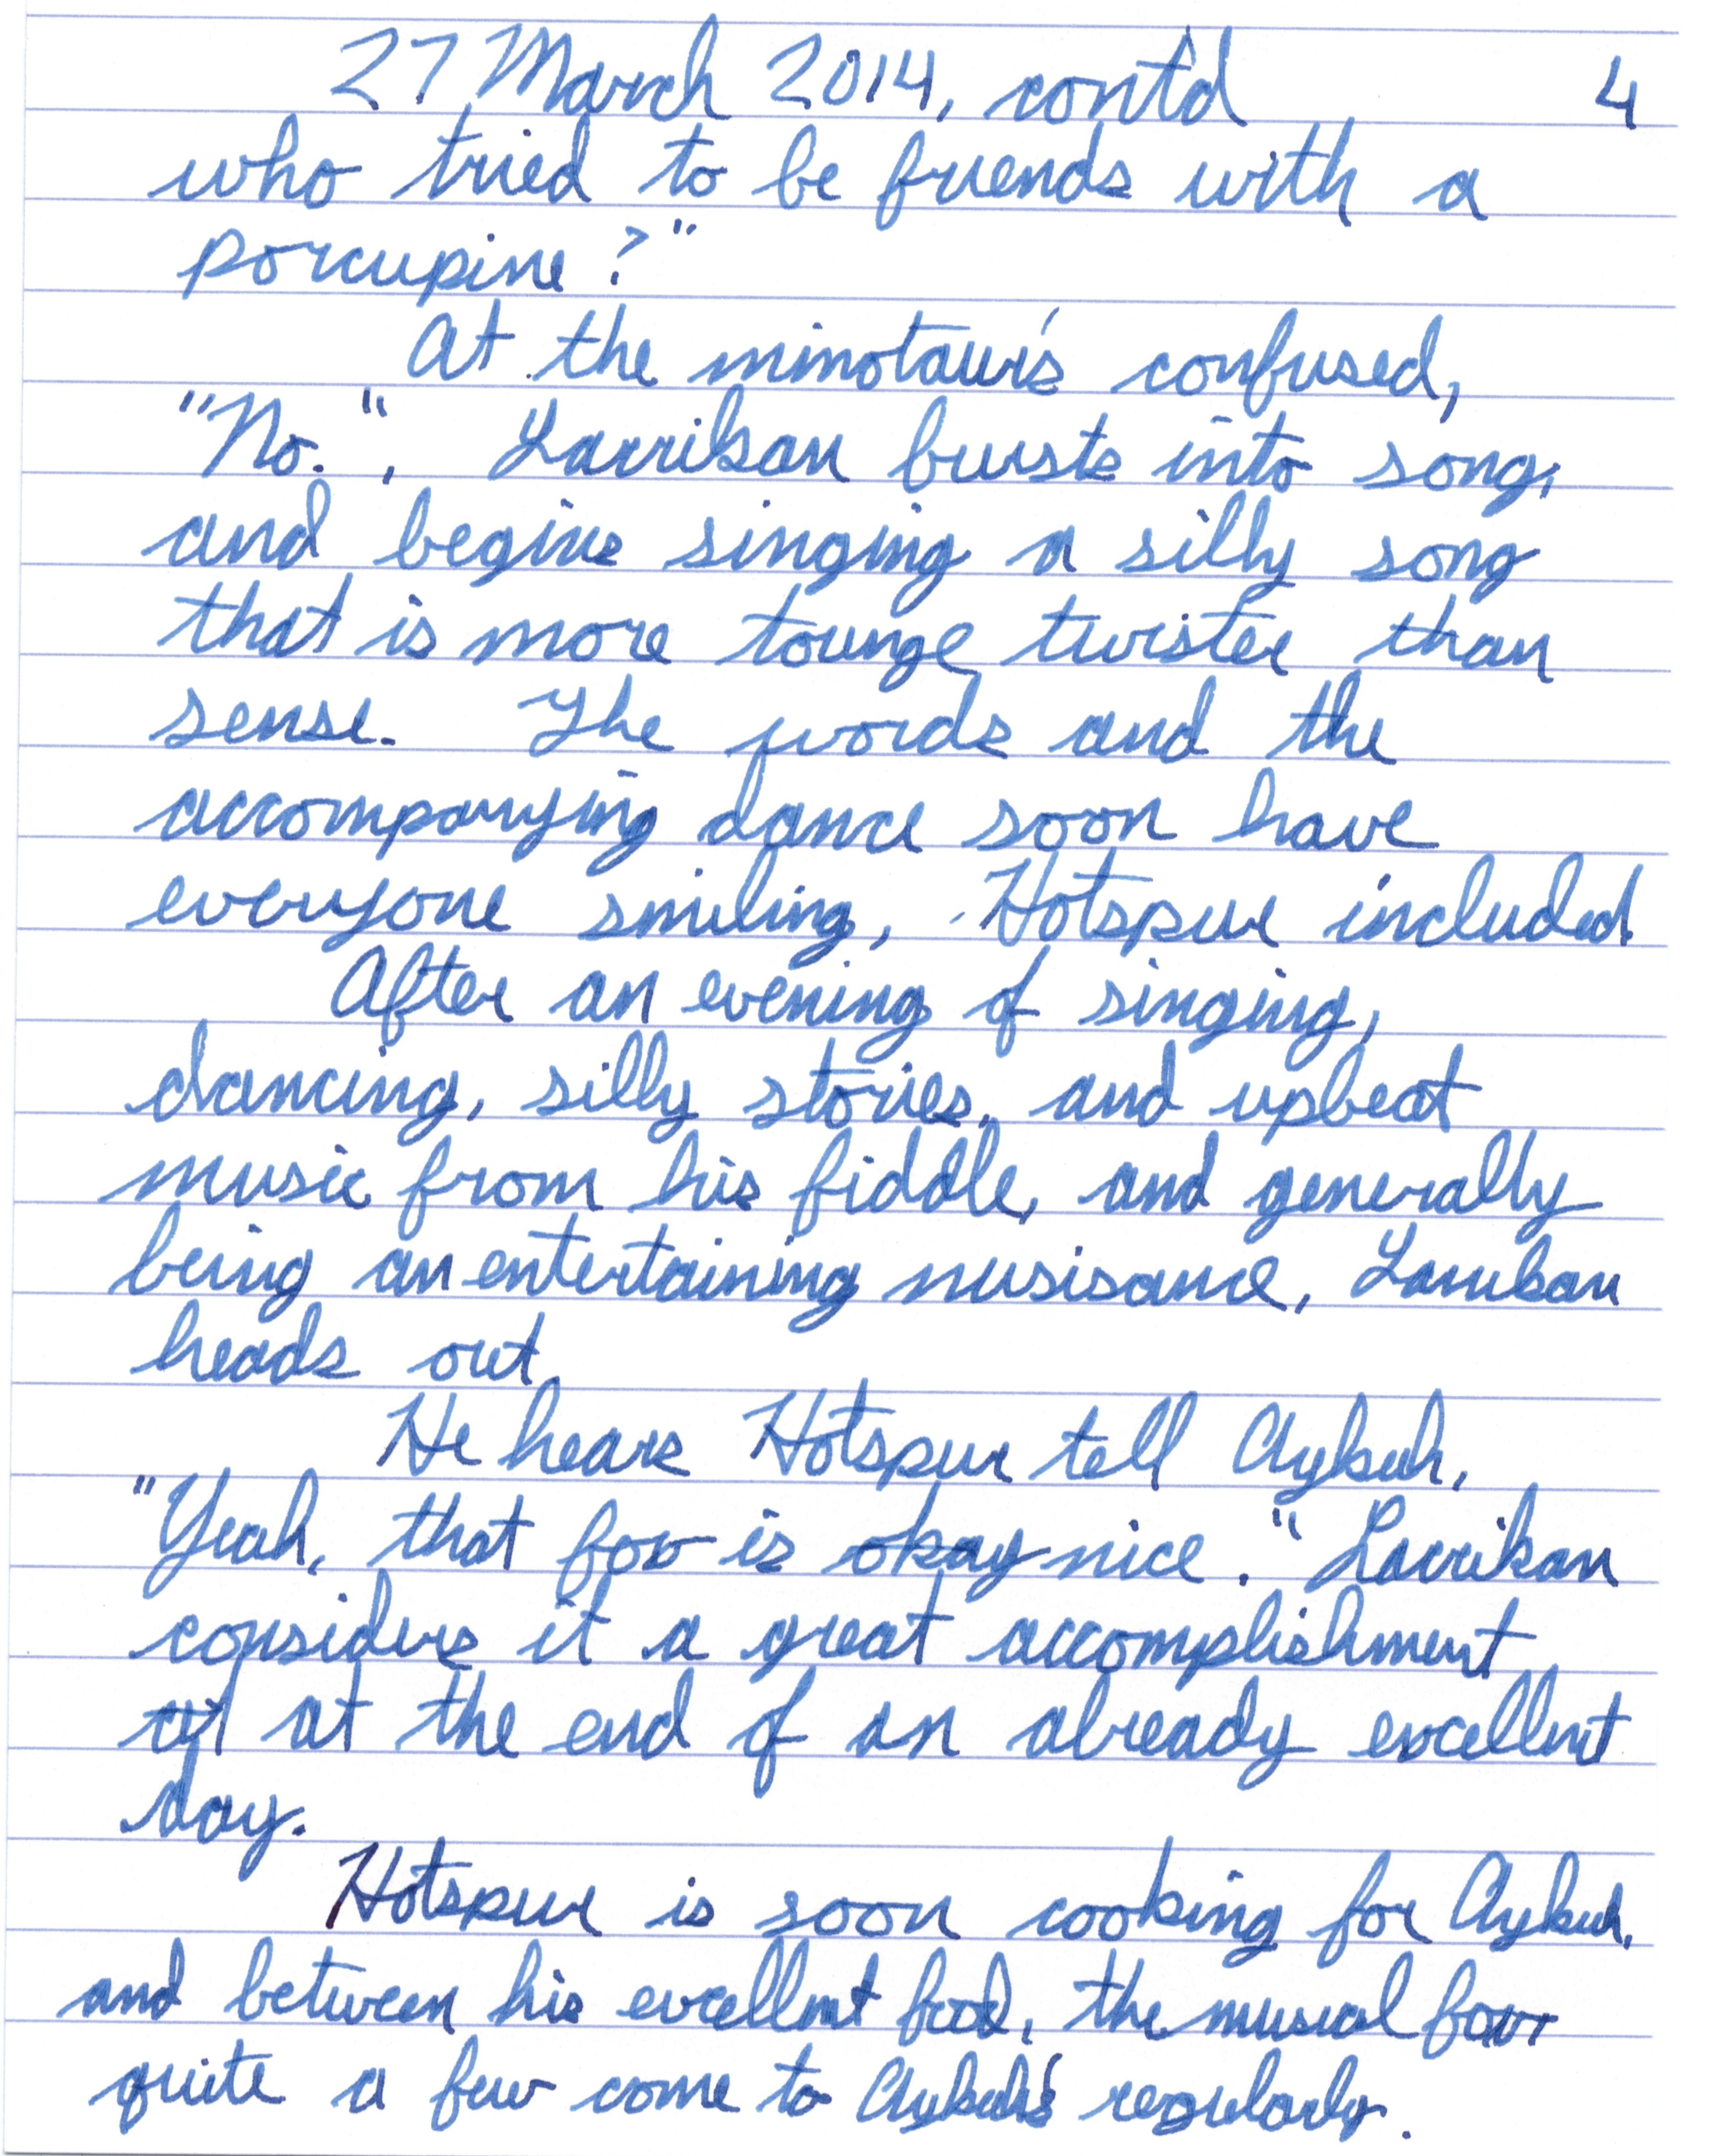 27 March 2014, cont'd 4
who tried to be friends with a
porcupine?"
At the minotaur's confused,
"No.", Larrikan bursts into song,
and begins singing a silly song
that is more tounge twister than
sense. The words and the
accompanying dance soon have
everyone smiling, Hotspur included.
After an evening of singing,
dancing, silly stories, and upbeat
music from his fiddle, and generally
being an entertaining nusisance, Larrikan
heads out.
He hears Hotspur tell Aykuh,
"Yeah, that fov is okay nice." Larrikan
considers it a great accomplishment
at the end of an already excellent
day.
Hotspur is soon cooking for Aykuh,
and between his excellent food, the musical fov
quite a few come to Aykuh's regularly.